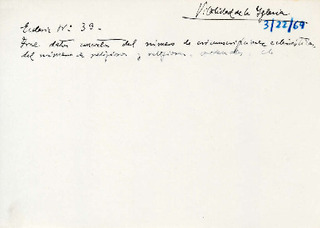 Vitalidad de la Iglesia
3/22/69
Ecclesia Nº 39.-
Trae datos concretos del número de circunscripciones eclesiásticas,
del número de religiosos y religiosas, etc